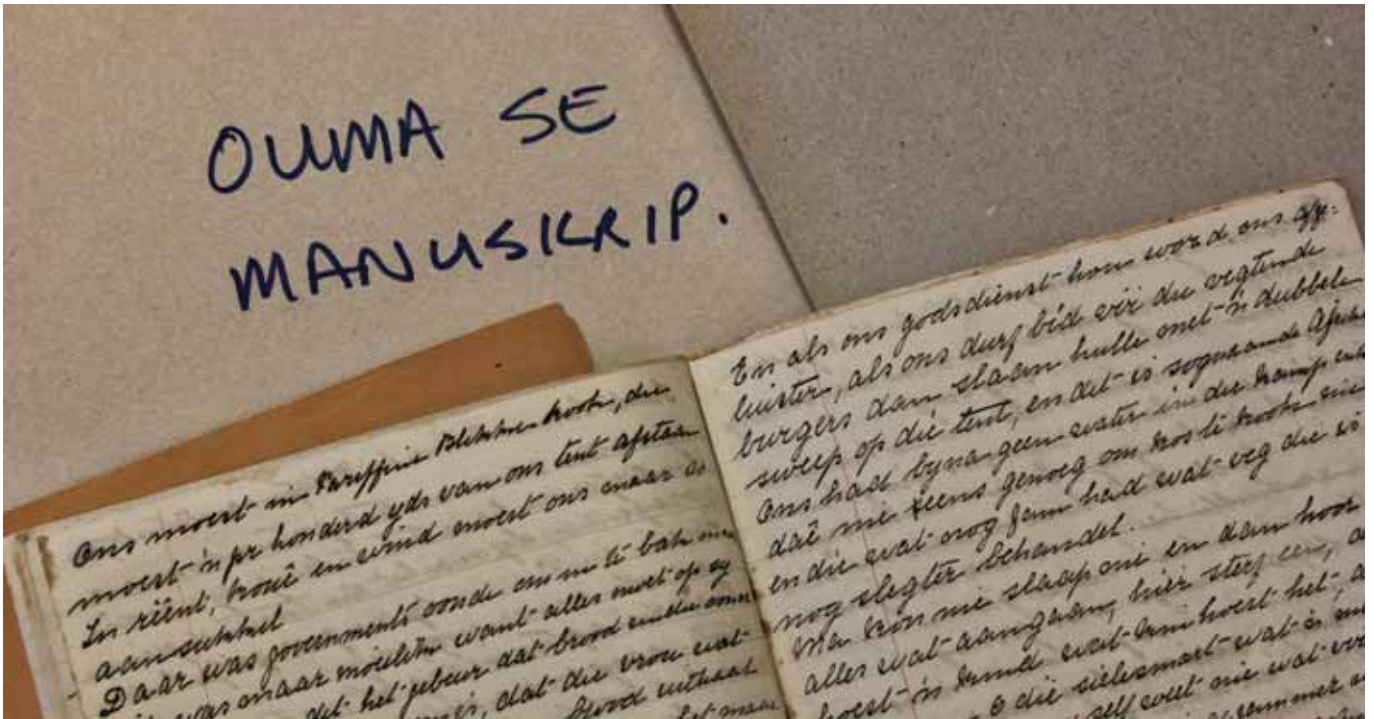 OUMA SE
MANUSKRIP.
Ons moest in Paraffine Blikke kook, die
moest 'n pr honderd yds van ons tent afstaan
In reënt, kouë en wind moest ons maar
aansukkel
Daar was governments oonde om in te bak
was maar moeilik want alles moet op
het gebeur dat brood
dat die vrou wat
brood uithaal
het maar
En als ons godsdienst hou word ons afge:
luister, als ons durf bid vir die vegtende
burgers dan slaan hulle met 'n dubbele
sweep op die tent, en dit is sogenaamde
Ons had byna geen water in die kamp
daë nie eens genoeg om kos te kook nie
en die wat nog Fam had wat veg die is
nog slegter behandel.
Ma kon nie slaap nie en dan hoor
alles wat aangaan, hier sterf een,
hoest 'n kind wat kinkhoest het,
O die sielesmart wat
self weet nie wat